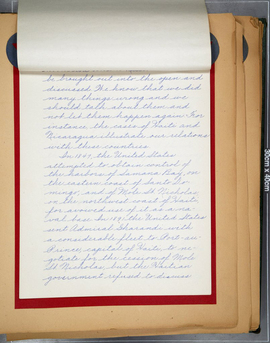 be brought out into the open and
discussed. We know that we did
many things wrong and we
should talk about them and
not let them happen again. For
instance, the cases of Haiti and
Nicaragua illustrate our relations
with these countries.
In 1889, the United States
attempted to obtain control of
the harbors of Samana Bay, on
the eastern coast of Santo Do-
mingo, and of Mole St. Nicholas,
on the northwest coast of Haiti,
for avowed use of it as a na-
val base. In 1891 the United States
sent Admiral Gherardi with
a considerable fleet to Port-au-
Prince, capital of Haiti, to ne-
gotiate for the cession of Mole
St. Nicholas, but the Haitian
government refused to discuss
30cm x 40cm